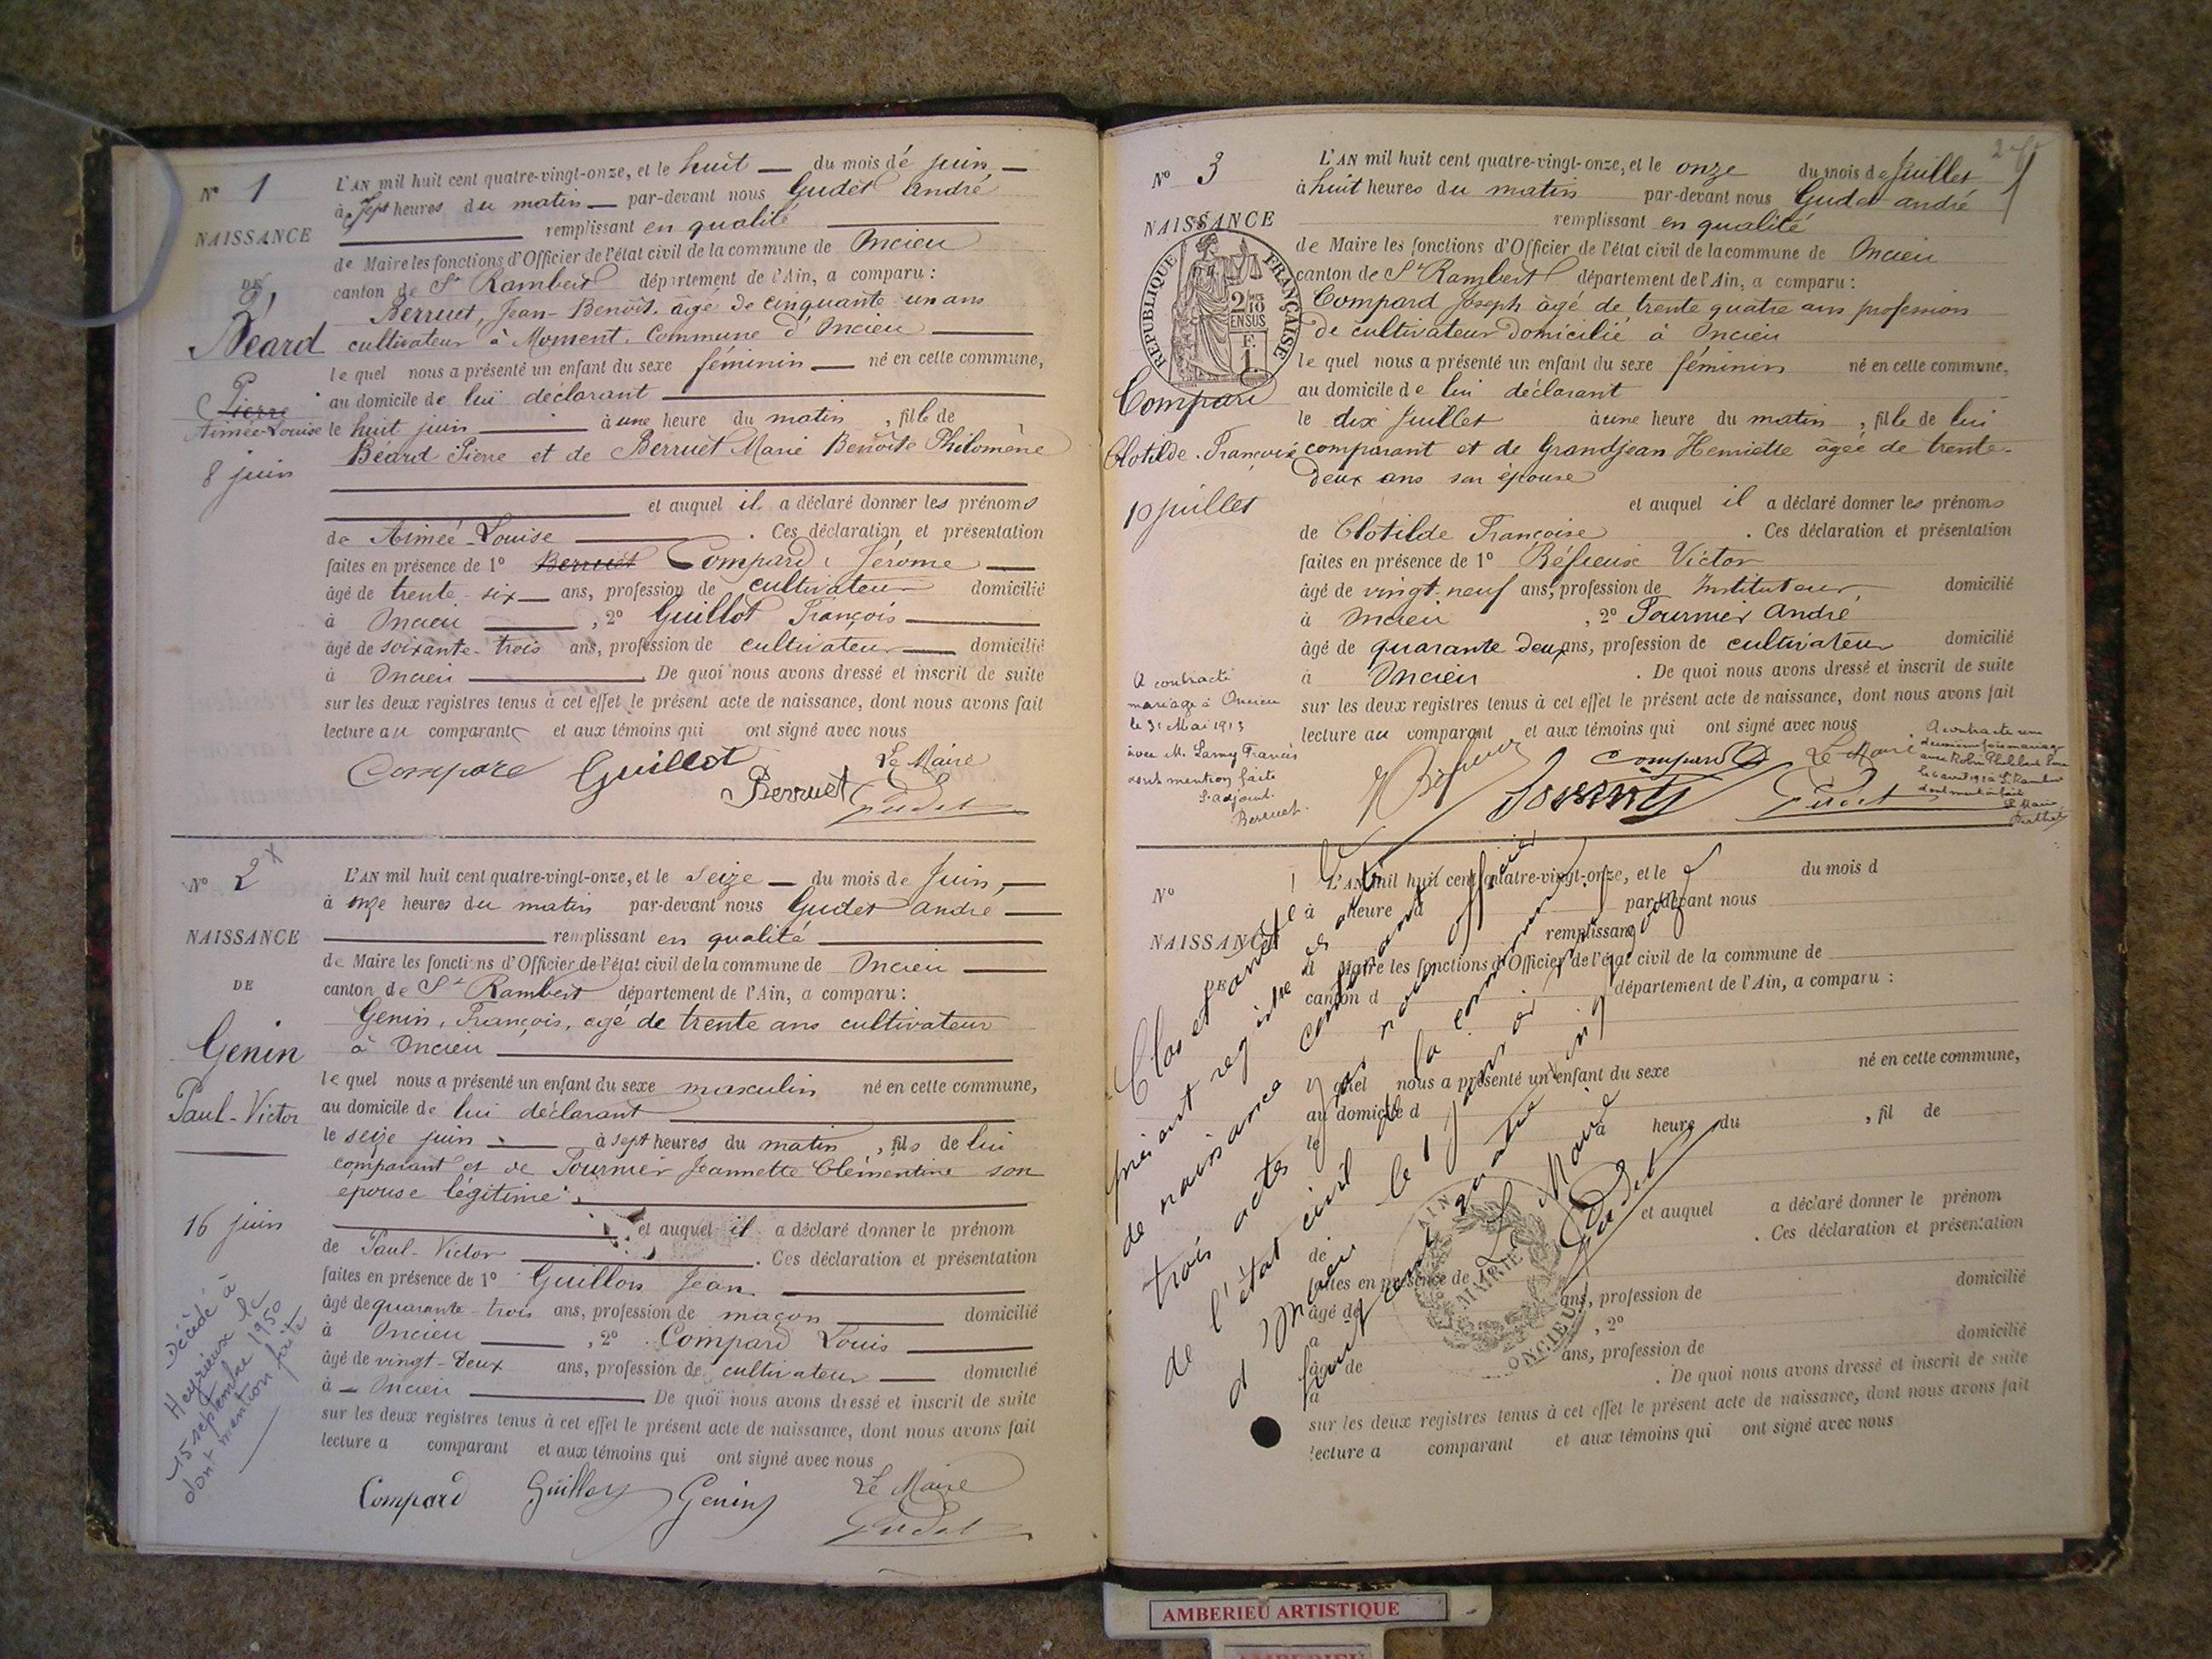 N° 1
NAISSANCE
DE
Béard
Pierre
Aimée-Louise
8 juin
L'AN mil huit cent quatre-vingt-onze, et le huit du mois de juin
à sept heures du matin par-devant nous Gudet andré
remplissant en qualité
de Maire les fonctions d'Officier de l'état civil de la commune de Oncieu
canton de St Rambert département de l'Ain, a comparu :
Berruet, Jean-Benoît. âgé de cinquante un ans
cultivateur à Moment. Commune d'Oncieu
le quel nous a présenté un enfant du sexe féminin né en cette commune,
au domicile de lui déclarant
le huit juin à une heure du matin, fille de
Béard Pierre et de Berruet Marie Benoîte Philomène
et auquel il a déclaré donner les prénoms
de Aimée-Louise . Ces déclaration et présentation
faites en présence de 1° Berruet Compard, Jérôme
âgé de trente-six ans, profession de cultivateur domicilié
à Oncieu , 2° Guillot François
âgé de soixante-trois ans, profession de cultivateur domicilié
à Oncieu . De quoi nous avons dressé et inscrit de suite
sur les deux registres tenus à cet effet le présent acte de naissance, dont nous avons fait
lecture au comparant et aux témoins qui ont signé avec nous
Compare Guillot Le Maire
Berruet Gudet
N° 2
NAISSANCE
DE
Genin
Paul-Victor
16 juin
Décédé à
Heyrieux le
15 septembre 1950
dont mention faite
L'AN mil huit cent quatre-vingt-onze, et le seize du mois de Juin,
à onze heures du matin par-devant nous Gudet andré
remplissant en qualité
de Maire les fonctions d'Officier de l'état civil de la commune de Oncieu
canton de St Rambert département de l'Ain, a comparu :
Genin, François, agé de trente ans cultivateur
à Oncieu
le quel nous a présenté un enfant du sexe masculin né en cette commune,
au domicile de lui déclarant
le seize juin à sept heures du matin , fils de lui
comparant et de Fournier Jeannette Clémentine son
epouse légitime.
et auquel il a déclaré donner le prénom
de Paul-Victor . Ces déclaration et présentation
faites en présence de 1° Guillon Jean
âgé de quarante-trois ans, profession de maçon domicilié
à Oncieu , 2° Compard Louis
âgé de vingt-deux ans, profession de cultivateur domicilié
à Oncieu . De quoi nous avons dressé et inscrit de suite
sur les deux registres tenus à cet effet le présent acte de naissance, dont nous avons fait
lecture a comparant et aux témoins qui ont signé avec nous
Compard Guillon Genin Le Maire
Gudet
N° 3
NAISSANCE
RÉPUBLIQUE FRANÇAISE
2/10 EN SUS
F. 1.
Compard
Clotilde-Françoise
10 juillet
A contracté
mariage à Oncieu
le 31 Mai 1913
avec M. Lamy Francis
dont mention faite
L'adjoint.
Berruet.
L'AN mil huit cent quatre-vingt-onze, et le onze du mois de Juillet
à huit heures du matin par-devant nous Gudet andré
remplissant en qualité
de Maire les fonctions d'Officier de l'état civil de la commune de Oncieu
canton de St Rambert département de l'Ain, a comparu :
Compard Joseph âgé de trente quatre ans profession
de cultivateur domicilié à Oncieu
le quel nous a présenté un enfant du sexe féminin né en cette commune,
au domicile de lui déclarant
le dix Juillet à une heure du matin , fille de lui
comparant et de Grandjean Henriette âgée de trente-
deux ans son épouse
et auquel il a déclaré donner les prénoms
de Clotilde Françoise . Ces déclaration et présentation
faites en présence de 1° Victor
âgé de vingt-neuf ans, profession de Instituteur, domicilié
à Oncieu , 2° Fournier André
âgé de quarante deux ans, profession de cultivateur domicilié
à Oncieu . De quoi nous avons dressé et inscrit de suite
sur les deux registres tenus à cet effet le présent acte de naissance, dont nous avons fait
lecture au comparant et aux témoins qui ont signé avec nous
Compard Le Maire
Gudet
A contracté une
deuxième fois mariage
avec Robin
St Rambert
dont mention fait
Le Maire
N°
NAISSANCE
DE
L'AN mil huit cent quatre-vingt-onze, et le du mois d
à heure d par-devant nous
remplissant
d Maire les fonctions d'Officier de l'état civil de la commune de
canton d département de l'Ain, a comparu :
quel nous a présenté un enfant du sexe né en cette commune,
au domicile d
le à heure du , fil de
et auquel a déclaré donner le prénom
de . Ces déclaration et présentation
faites en présence de 1°
âgé de ans, profession de domicilié
à , 2°
âgé de ans, profession de domicilié
à . De quoi nous avons dressé et inscrit de suite
sur les deux registres tenus à cet effet le présent acte de naissance, dont nous avons fait
lecture a comparant et aux témoins qui ont signé avec nous
Clos et arrêté le
présent registre des actes
de naissance contenant
trois actes par nous officier
de l'état civil de la commune
d'Oncieu le 1er janvier mil
huit cent quatre vingt
Le Maire
Gudet
AIN
MAIRIE
ONCIEU
AMBERIEU ARTISTIQUE
AMBERIEU